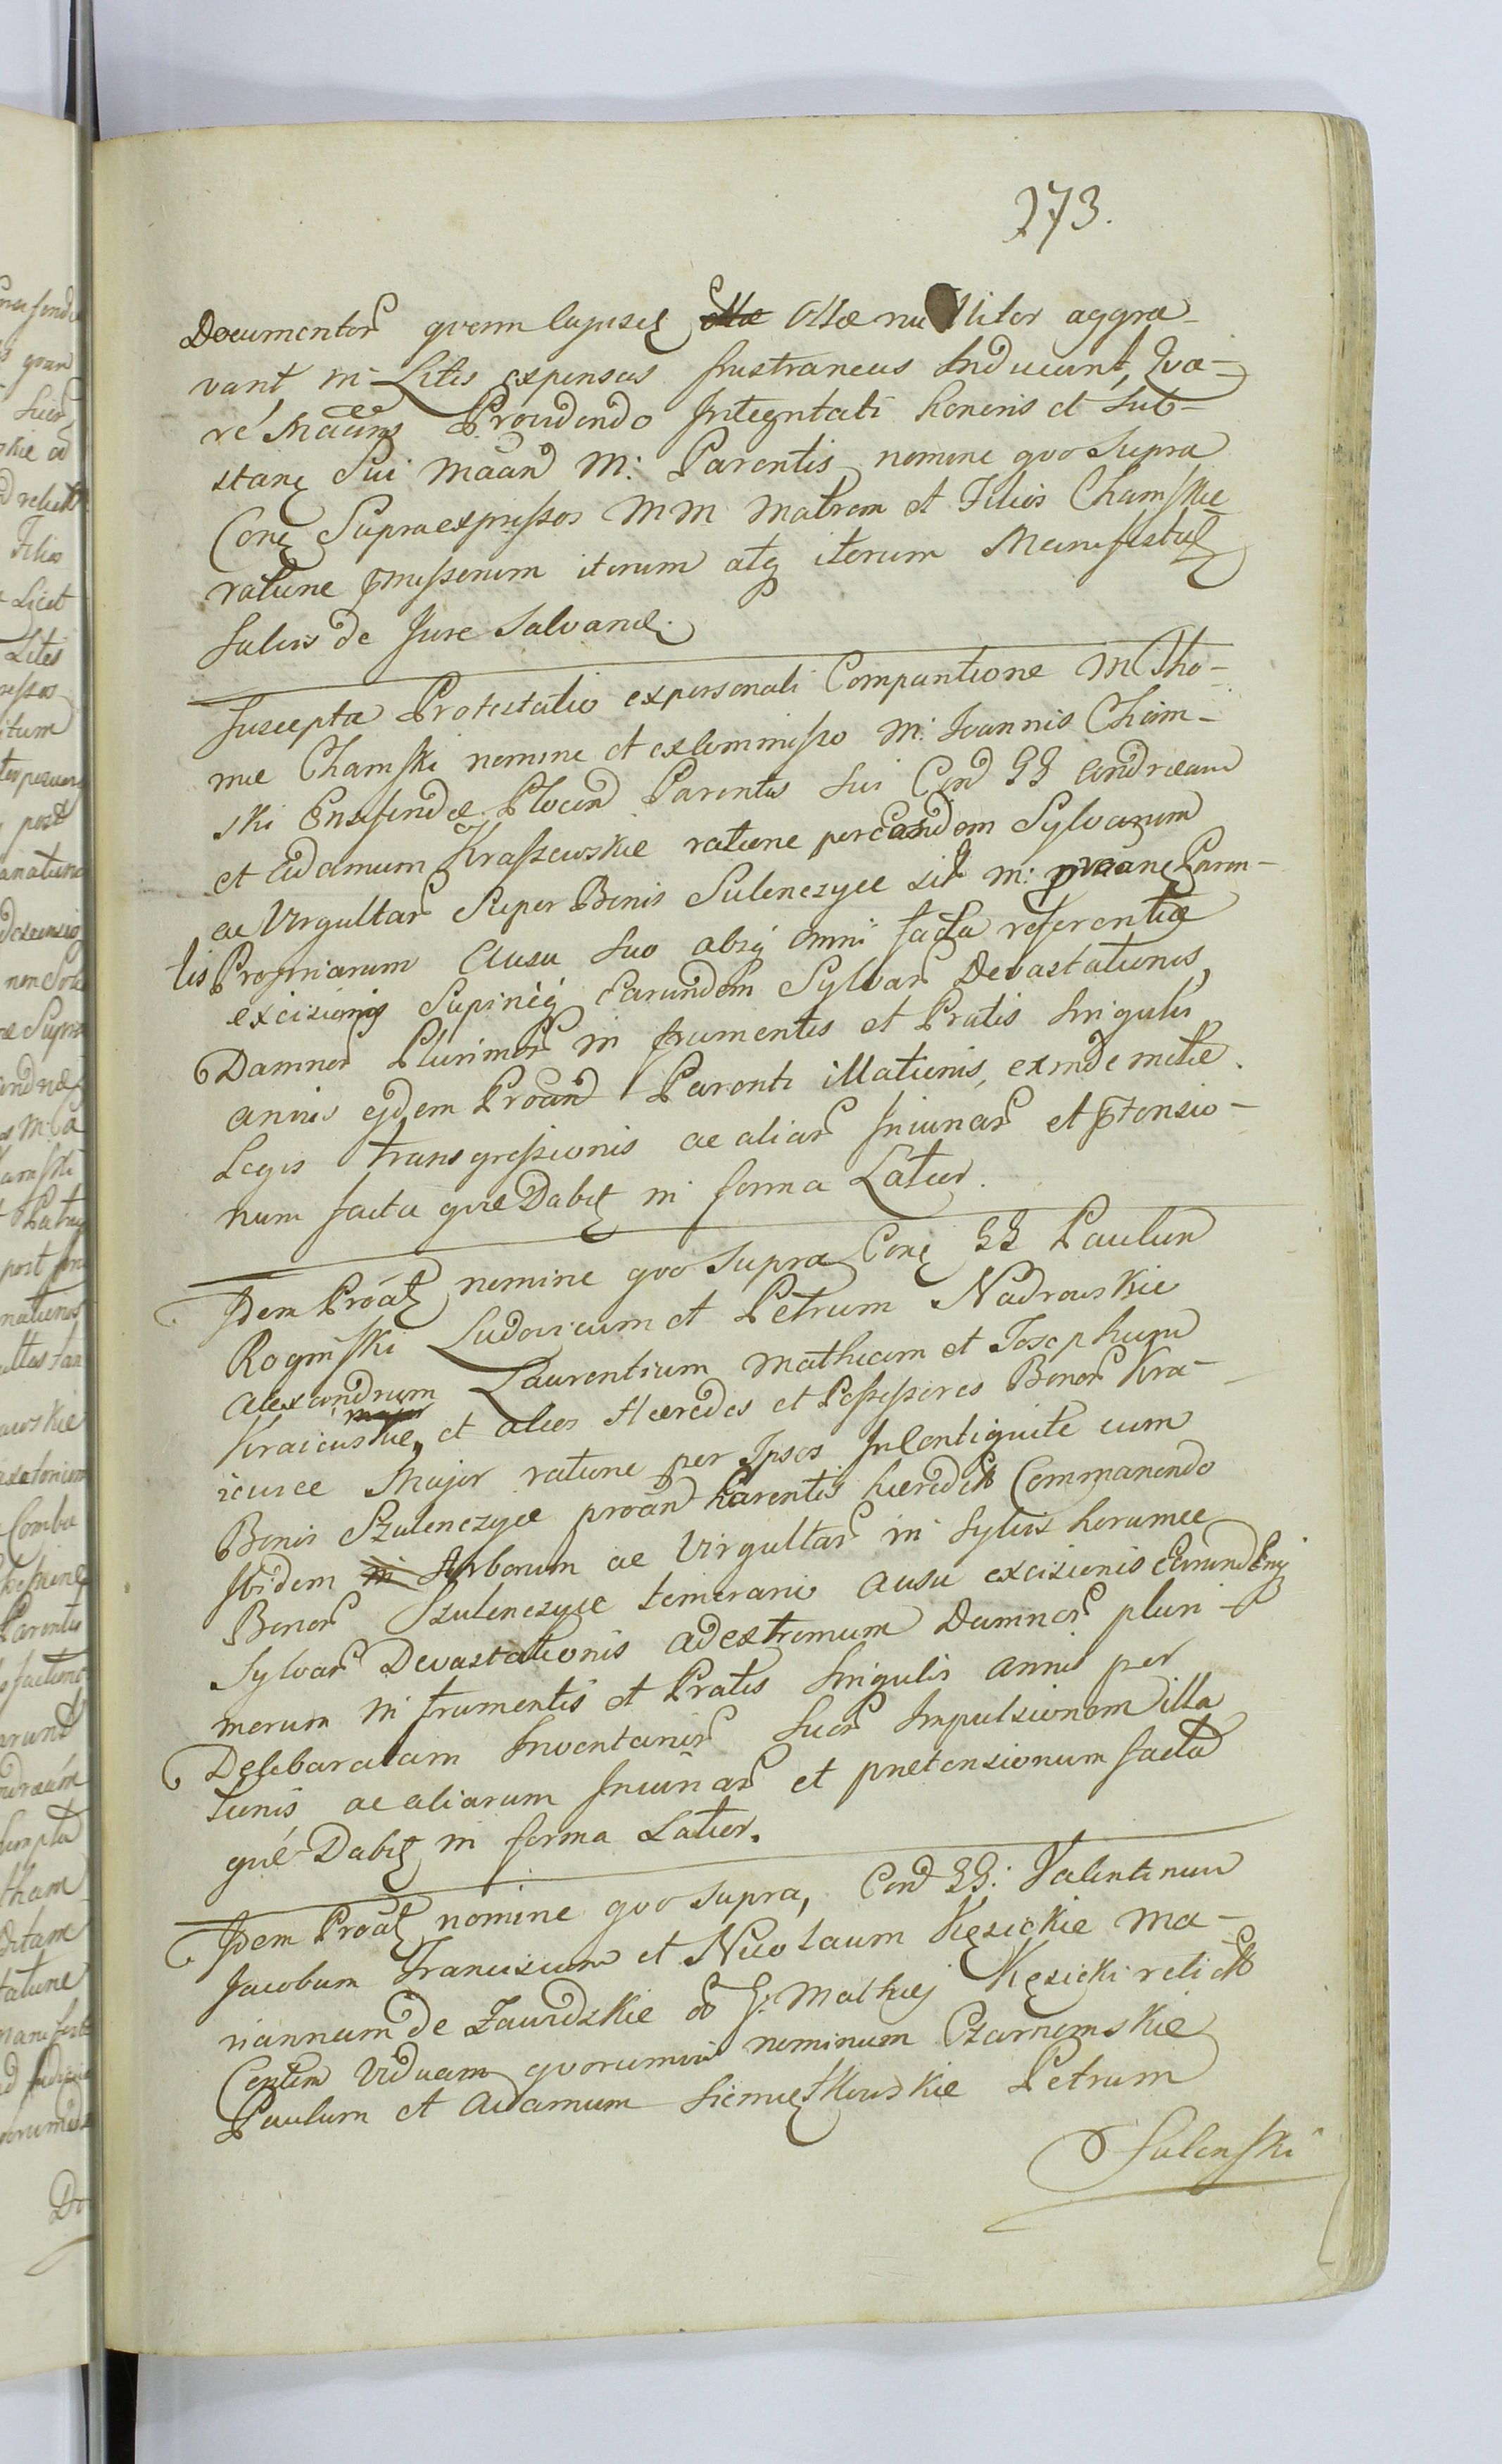 273.
Documentor qvem lapises Osse nulliter aggra-
vant, in Litis expensas frustraneas Inducunt, Qva-
re Maans Providendo Integritati honoris et Sub-
stanę Sui Maand M: Parentis nomine qvo supra
Conę Supraexpressos MM Matrem et Filios Chamskie
ratione pmissorum iterum atq iterum Manifestatę
salvis de Jure Salvandę.
Suscepta Protestatio expersonali Comparitione M Tho-
mae Chamski nomine et excommisso M: Joannis Cham-
ski Ensiferidae Plocen Parentis sui Con GG Andream
et Adamum Kraszewskie ratione per eosdem Sylvarum
ac Virgultar super Bonis Sulenczyce M: Paren-
tis Propriarum Ausu suo absq omni facta referentia
excisionis Earundem Sylvar Devastationis,
Damnor Plurimor in frumentis et Pratis Singulis
annis ejdem Proand Parenti illationis, exinde
Legis transgressionis ac aliar Injuriar et ptensio-
num facta qvae Dabit in forma Latior.
Idem Proatę nomine qvo supra Conę GG Paulum
Roginski Ludovicum et Petrum Nadrowskie
Alexandrum Laurentium Mathiam et Josephum
Kraiewskie, et alios Haeredes et Possessores Bonor Kra-
iewce Major ratione per Ipsos In Contiguite cum
Bonis Szulenczyce proand Parentis haeredit Commanendo
Ibidem Arborum ac Virgultar in Sylvis horumce
Bonor Szulenczyce temerario ausu excisionis Earund Enq
Sylvar Devastationis ad extremum Damnor pluri-
morum in frumentis et Pratis Singulis annis per
Deliberatam Inventarior suor Impulsionem illa
tionis ac aliarum Injuriar et praetensionum facta
qvae Dabit in forma Latior.
Idem Proatę nomine qvo supra, Con GG: Valentinum
Jacobum Franciscum et Nicolaum Kęsickie Ma-
riannam de Zawidzkie G: Mathiej Kęsicki relict
Viduam qvorumvis nominum Czarnomskie
Paulum et Adamum Siemiętkowskie Petrum
Sulenski